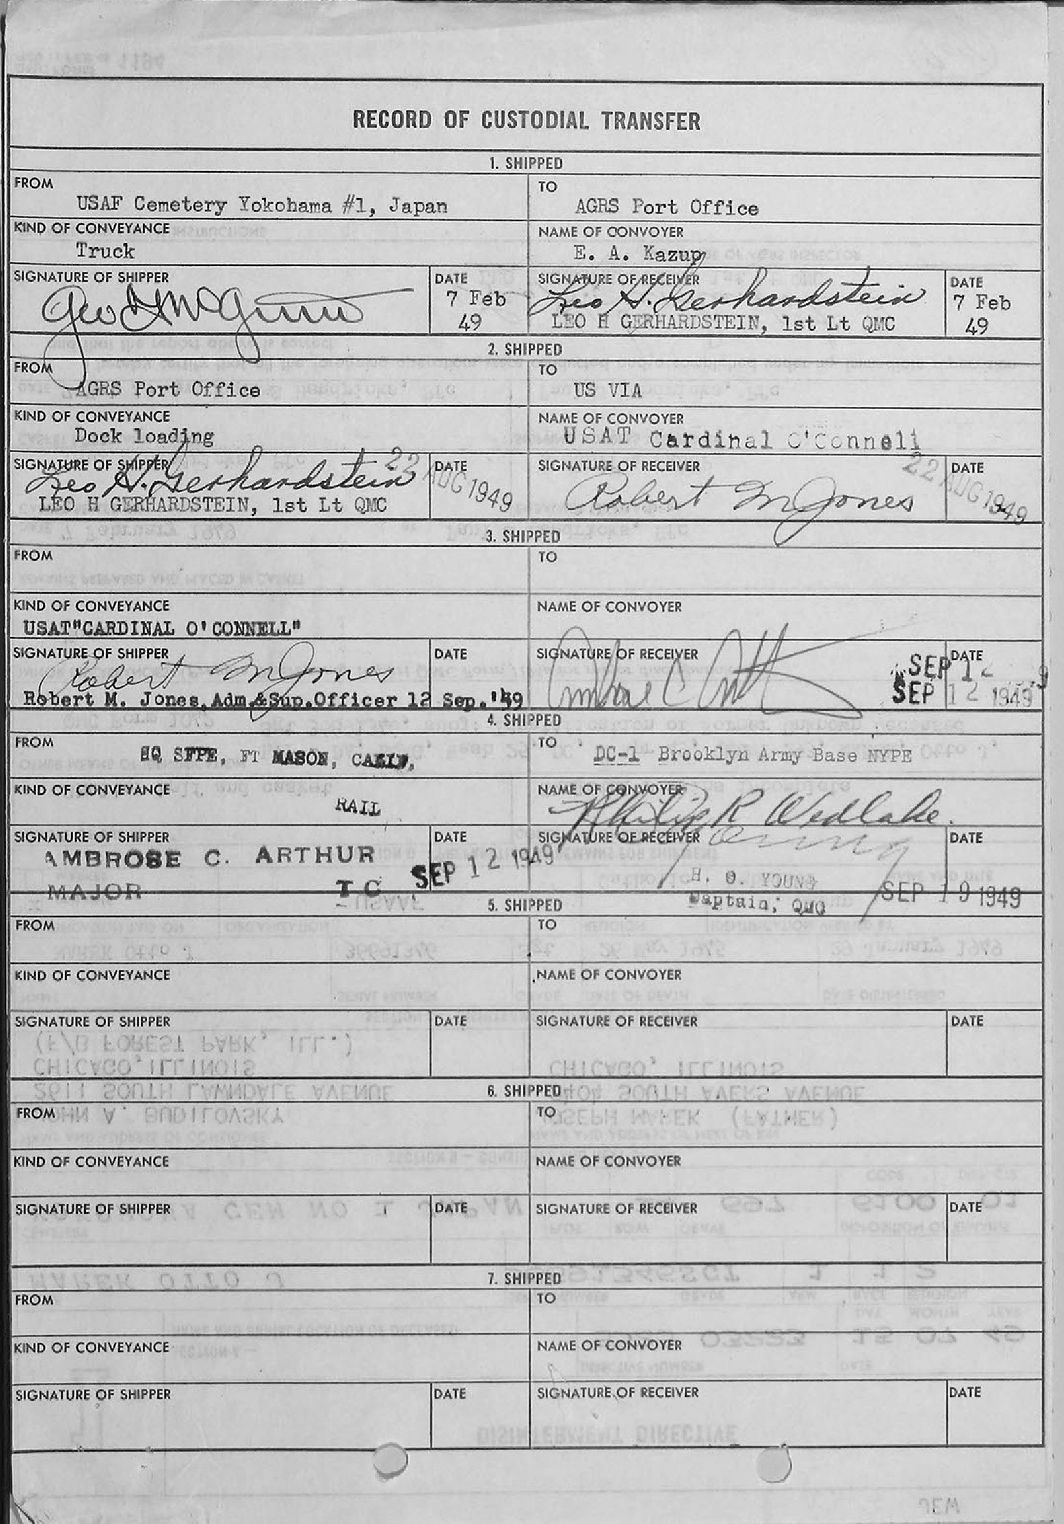 RECORD OF CUSTODIAL TRANSFER
1. SHIPPED
FROM
USAF Cemetery Yokohama #1, Japan
TO
AGRS Port Office
KIND OF CONVEYANCE
Truck
NAME OF CONVOYER
E. A. Kazup
SIGNATURE OF SHIPPER
DATE
7 Feb
49
SIGNATURE OF RECEIVER
Leo H. Gerhardstein
LEO H GERHARDSTEIN, 1st Lt QMC
DATE
7 Feb
49
2. SHIPPED
FROM
AGRS Port Office
TO
US VIA
KIND OF CONVEYANCE
Dock loading
NAME OF CONVOYER
USAT Cardinal O'Connell
SIGNATURE OF SHIPPER
Leo H. Gerhardstein
LEO H GERHARDSTEIN, 1st Lt QMC
DATE
22 AUG 1949
SIGNATURE OF RECEIVER
Robert M Jones
DATE
22 AUG 1949
3. SHIPPED
FROM
TO
KIND OF CONVEYANCE
USAT"CARDINAL O'CONNELL"
NAME OF CONVOYER
SIGNATURE OF SHIPPER
DATE
Robert M Jones
Robert M. Jones, Adm.&Sup.Officer 12 Sep.'49
SIGNATURE OF RECEIVER
Ambrose C Arthur
DATE
SEP 12
SEP 12 1949
4. SHIPPED
FROM
HQ SFPE, FT MASON, CALIF,
TO
DC-1 Brooklyn Army Base NYPE
KIND OF CONVEYANCE
RAIL
NAME OF CONVOYER
Philip R Wedlake.
SIGNATURE OF SHIPPER
AMBROSE C. ARTHUR
MAJOR TC
DATE
SEP 12 1949
SIGNATURE OF RECEIVER
H. O. YOUNG
Captain, QMC
DATE
SEP 19 1949
5. SHIPPED
FROM
TO
KIND OF CONVEYANCE
NAME OF CONVOYER
SIGNATURE OF SHIPPER
DATE
SIGNATURE OF RECEIVER
DATE
6. SHIPPED
FROM
TO
KIND OF CONVEYANCE
NAME OF CONVOYER
SIGNATURE OF SHIPPER
DATE
SIGNATURE OF RECEIVER
DATE
7. SHIPPED
FROM
TO
KIND OF CONVEYANCE
NAME OF CONVOYER
SIGNATURE OF SHIPPER
DATE
SIGNATURE OF RECEIVER
DATE